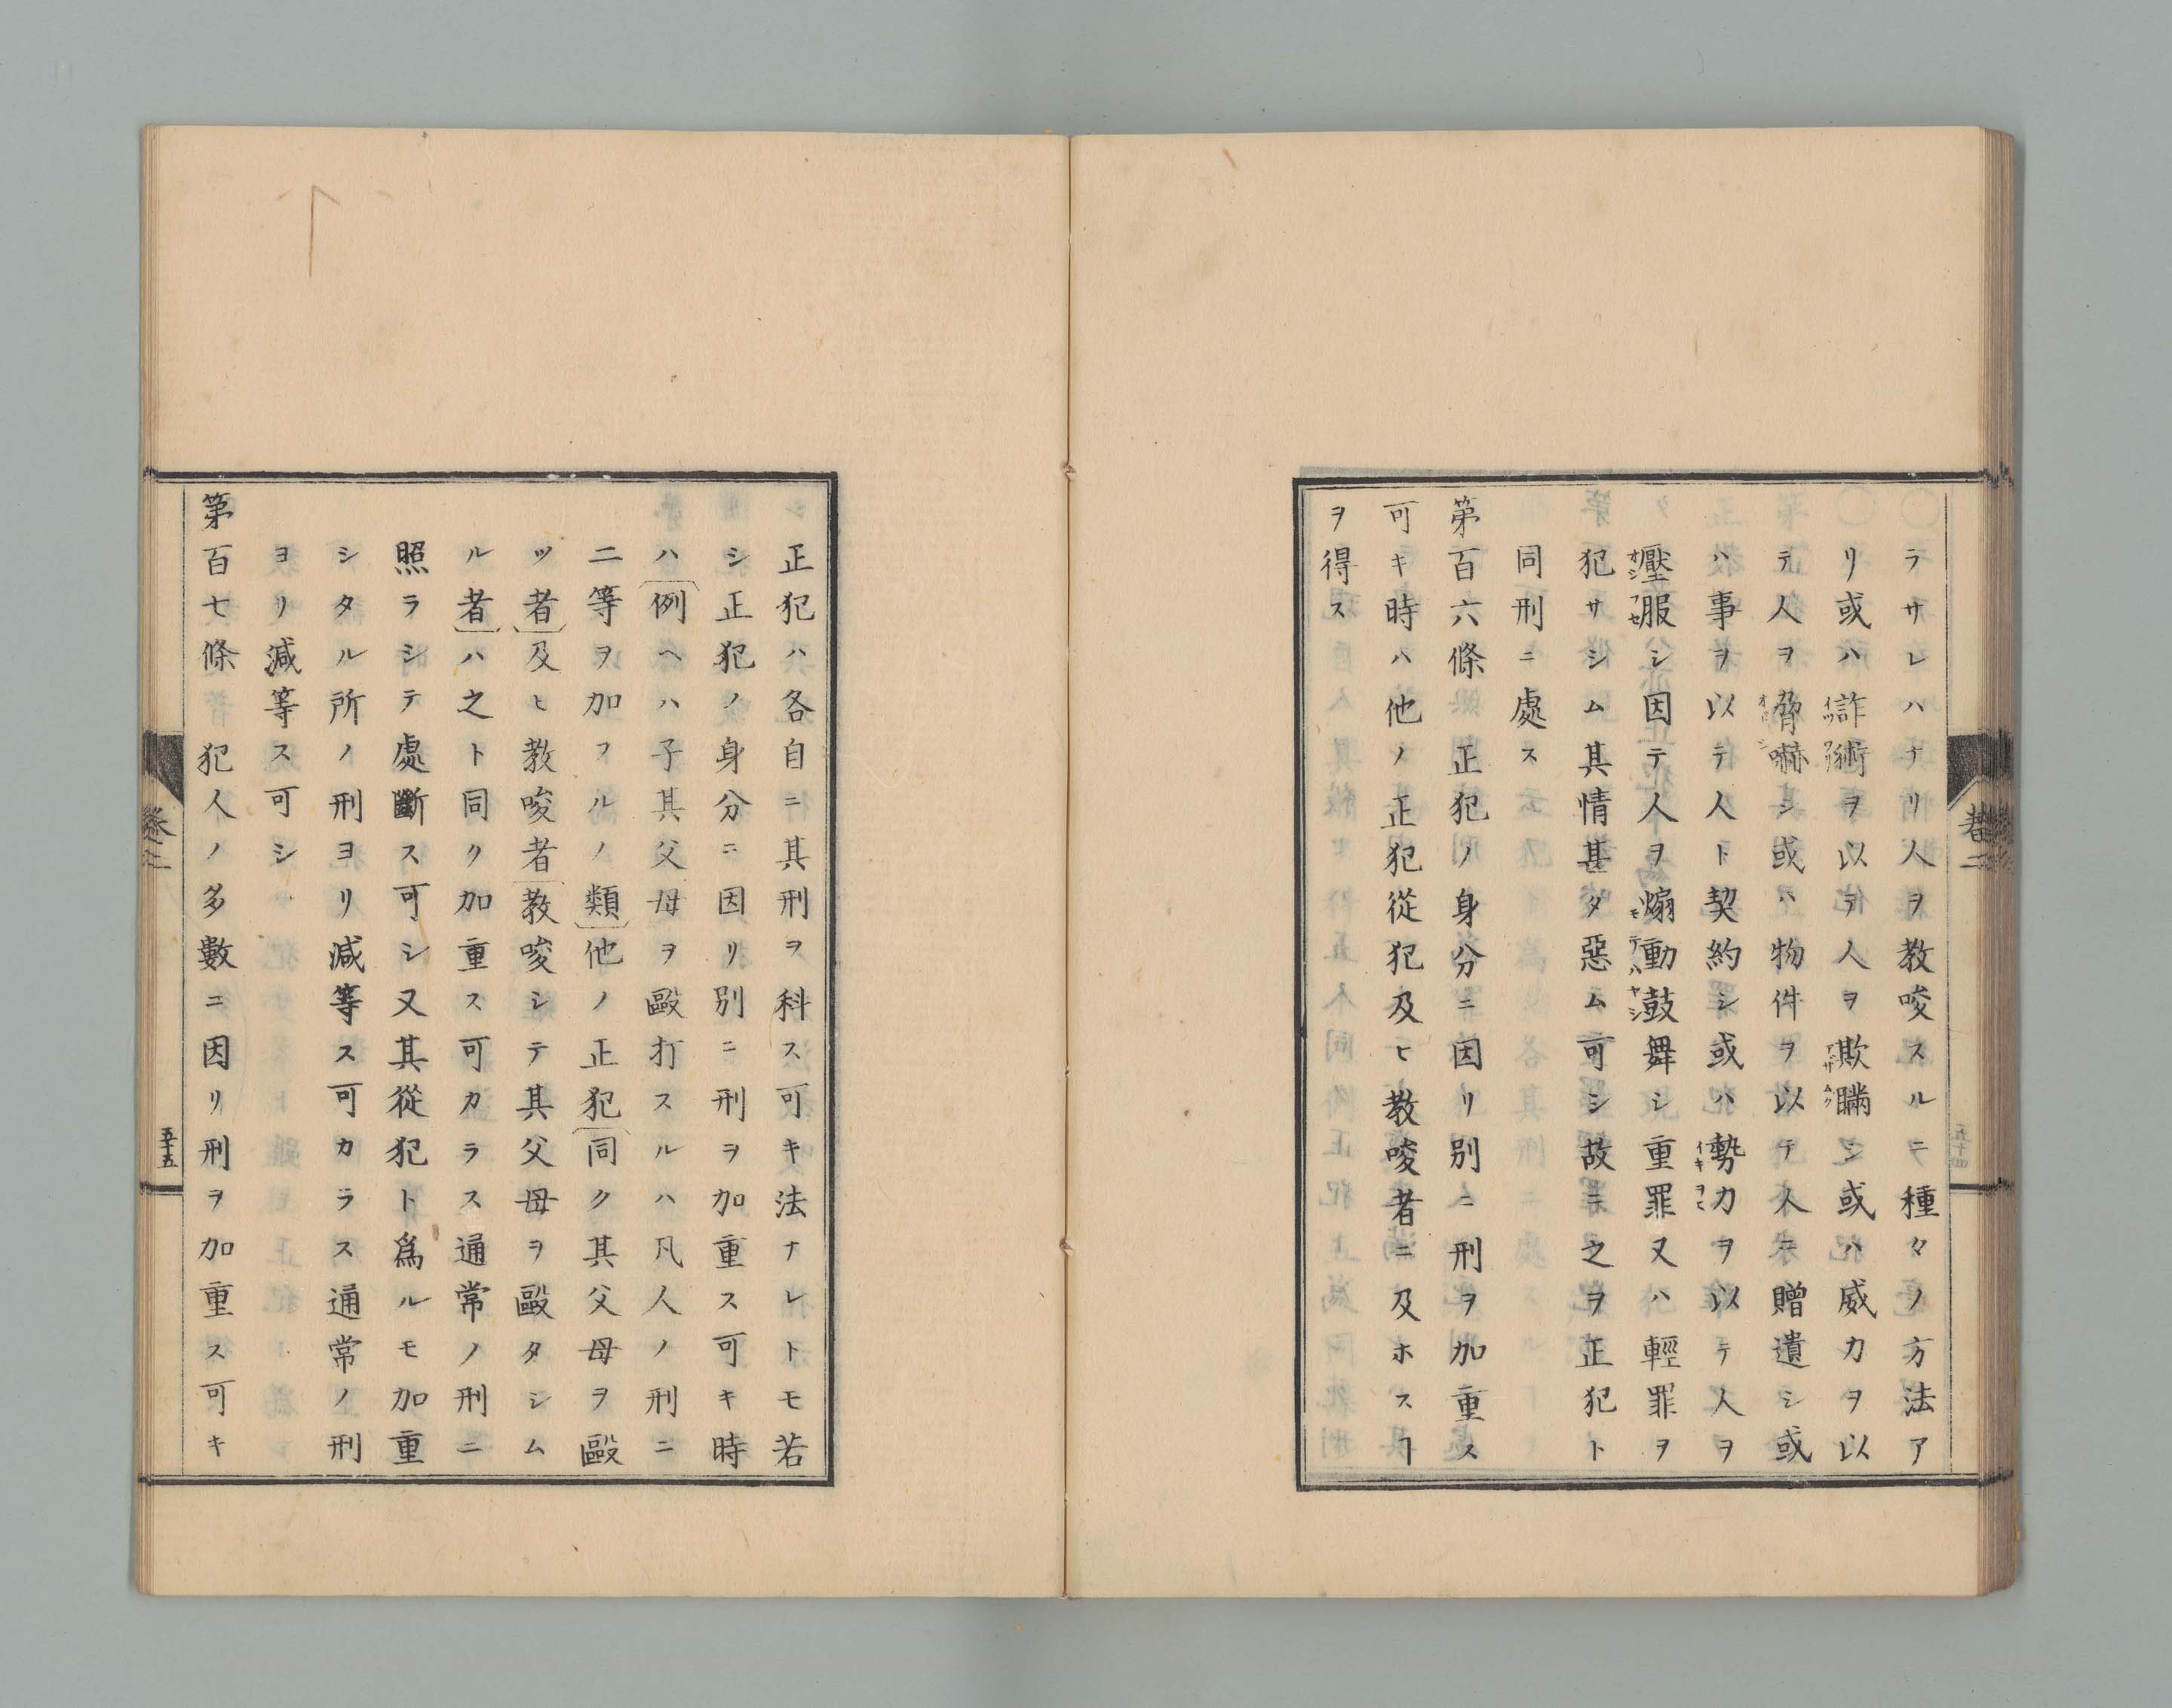 ラサレハナリ人ヲ教唆スルニ種々ノ方法ア
リ或ハ詐術ヲ以テ人ヲ欺瞞シ或ハ威力ヲ以
テ人ヲ脅嚇シ或ハ物件ヲ以テ人ニ贈遺シ或
ハ事ヲ以テ人ト契約シ或ハ勢力ヲ以テ人ヲ
壓服シ因テ人ヲ煽動鼓舞シ重罪又ハ輕罪ヲ
犯サシム其情甚タ惡ム可シ故ニ之ヲ正犯ト
同刑ニ處ス
第百六條 正犯ノ身分ニ因リ別ニ刑ヲ加重ス
可キ時ハ他ノ正犯從犯及ヒ教唆者ニ及ホスヿ
ヲ得ス
卷二
五十四
正犯ハ各自ニ其刑ヲ科ス可キ法ナレトモ若
シ正犯ノ身分ニ因リ別ニ刑ヲ加重ス可キ時
ハ(例ヘハ子其父母ヲ毆打スルハ凡人ノ刑ニ
二等ヲ加フルノ類)他ノ正犯(同ク其父母ヲ毆
ツ者)及ヒ教唆者(教唆シテ其父母ヲ毆タシム
ル者)ハ之ト同ク加重ス可カラス通常ノ刑ニ
照ラシテ處斷ス可シ又其從犯ト爲ルモ加重
シタル所ノ刑ヨリ減等ス可カラス通常ノ刑
ヨリ減等ス可シ
第百七條 犯人ノ多數ニ因リ刑ヲ加重ス可キ
卷二
五十五